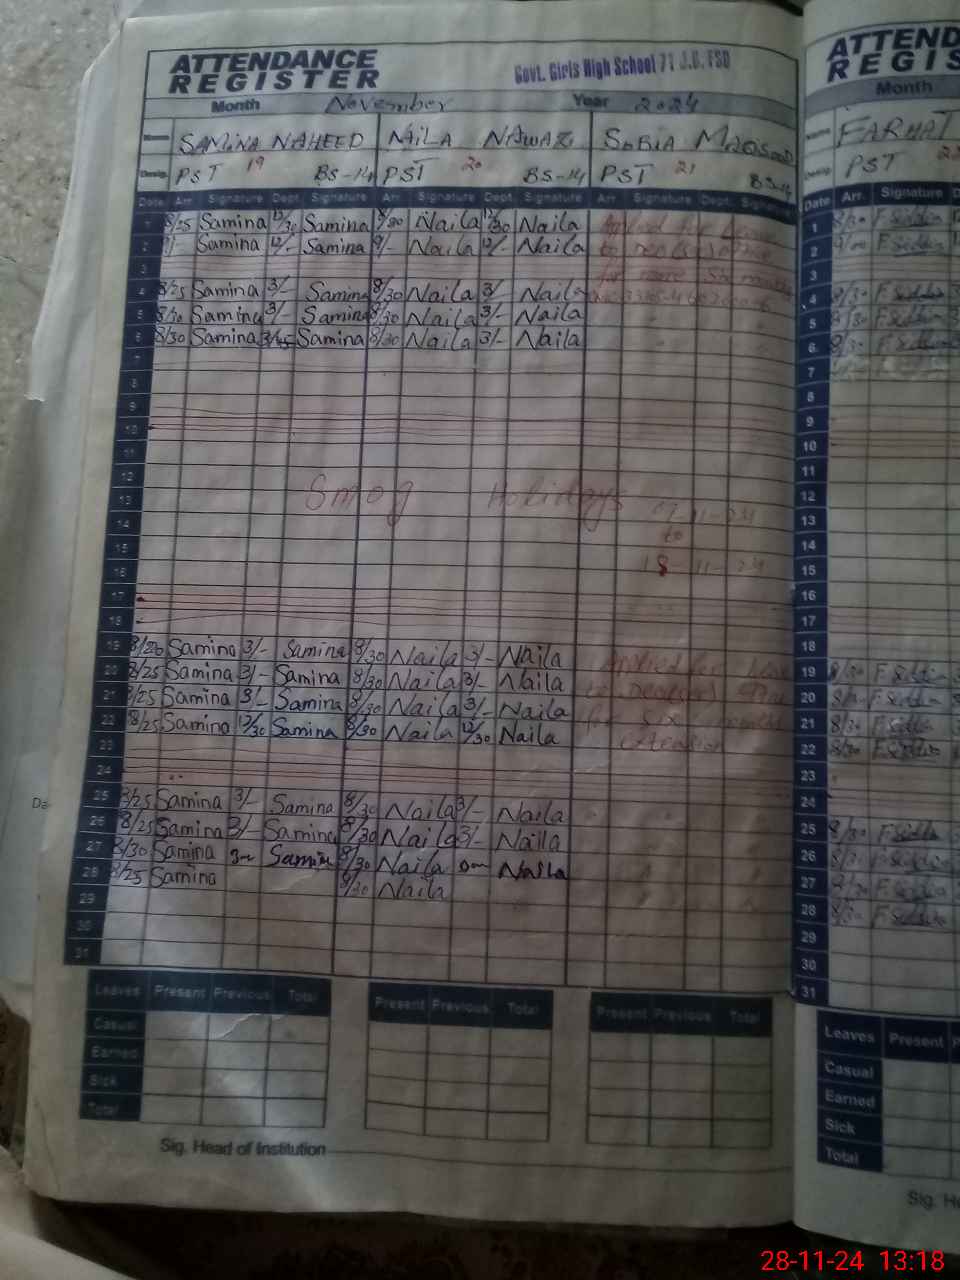 ATTENDANCE
REGISTER
Govt. Girls High School 71 J.B. FSD
Month November Year 2024
Name SAMINA NAHEED NAILA NAWAZ SOBIA MAQSOOD
Desig. PST 19 BS-14 PST 20 BS-14 PST 21 BS-14
Date Arr. Signature Dept. Signature Arr. Signature Dept. Signature Arr. Signature Dept. Signature
1 8/25 Samina 12/30 Samina 8/30 Naila 12/30 Naila Applied for Leave
2 9/- Samina 12/- Samina 9/- Naila 12/- Naila to
3 for more Six months
4 8/25 Samina 3/- Samina 8/30 Naila 3/- Naila
5 8/30 Samina 3/- Samina 8/30 Naila 3/- Naila
6 8/30 Samina Samina 8/30 Naila 3/- Naila
7
8
9
10
11
12
13 Smog Holidays 07-11-24
14 to
15
16 18-11-24
17
18
19 8/20 Samina 3/- Samina 8/30 Naila 3/- Naila Applied for Leave
20 8/25 Samina 3/- Samina 8/30 Naila 3/- Naila to
21 8/25 Samina 3/- Samina 8/30 Naila 3/- Naila for six months
22 8/25 Samina 12/30 Samina 8/30 Naila 12/30 Naila extension
23
24
25 8/25 Samina 3/- Samina 8/30 Naila 3/- Naila
26 8/25 Samina 3/- Samina 8/30 Naila 3/- Naila
27 8/30 Samina Samina 8/30 Naila Naila
28 8/25 Samina 8/30 Naila
29
30
31
Leaves Present Previous Total Present Previous Total Present Previous Total
Casual
Earned
Sick
Total
Sig. Head of Institution
ATTEND
REGIS
Month
Name FARHAT
Desig. PST
Date Arr. Signature
1 8/30
2 9/00
3
4 8/30
5 8/30
6 8/30
7
8
9
10
11
12
13
14
15
16
17
18
19 8/30
20
21 8/30
22 8/30
23
24
25 8/30
26
27
28 8/30
29
30
31
Leaves Present P
Casual
Earned
Sick
Total
Sig. He
28-11-24 13:18